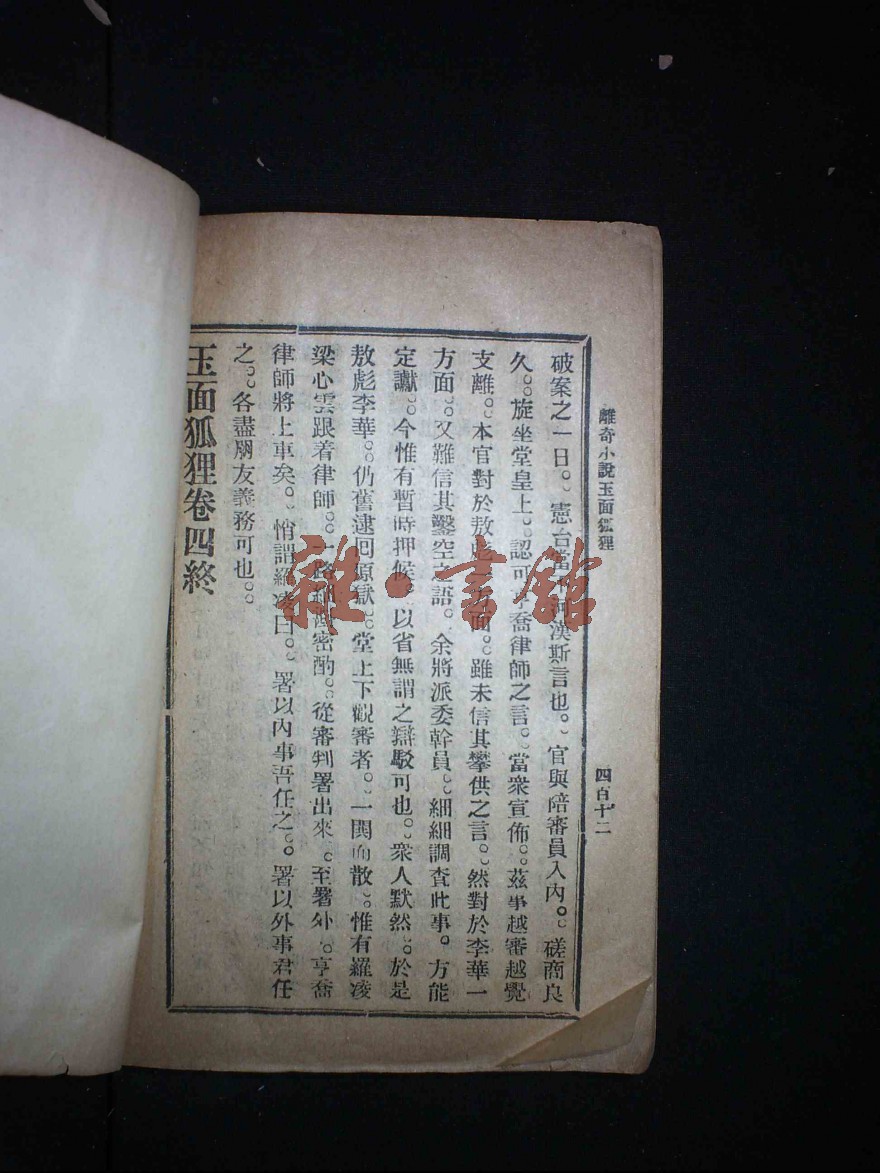 離奇小說玉面狐狸
四百十二
破案之一日。憲台當 河漢斯言也。官與陪審員入內。磋商良
久。旋坐堂皇上。認可亨喬律師之言。當衆宣佈。茲事越審越覺
支離。本官對於敖彪 方面。雖未信其攀供之言。然對於李華一
方面。又難信其鑿空之語。余將派委幹員。細細調查此事。方能
定讞。今惟有暫時押候。以省無謂之辯駁可也。衆人默然。於是
敖彪李華。仍舊逮回原獄。堂上下觀審者。一鬨而散。惟有羅凌
梁心雲跟着律師。一路 密酌。從審判署出來。至署外。亨喬
律師將上車矣。悄謂羅凌曰。署以內事吾任之。署以外事君任
之。各盡朋友義務可也。
玉面狐狸卷四終
雜·書館